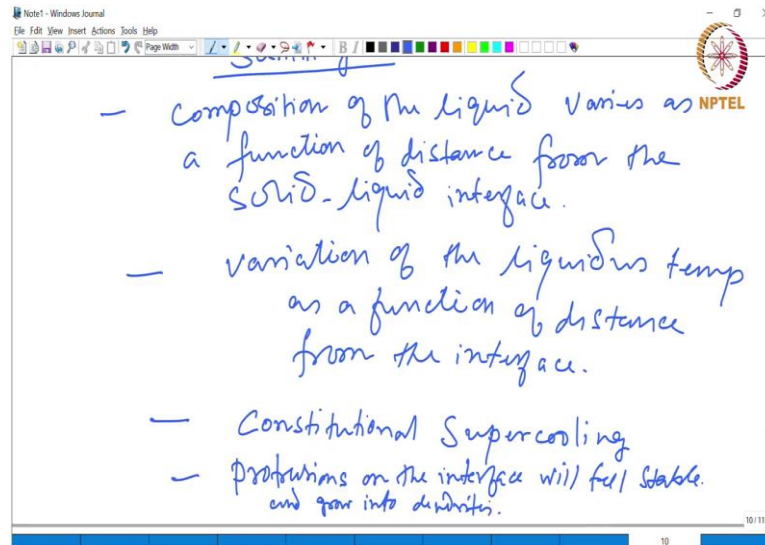 Note1 - Windows Journal
File Edit View Insert Actions Tools Help
Page Width
B I
NPTEL
- Composition of the liquid varies as
a function of distance from the
solid-liquid interface.
- variation of the liquidus temp
as a function of distance
from the interface.
- Constitutional Supercooling
- Protrusions on the interface will feel stable.
and grow into dendrites.
10/11
10